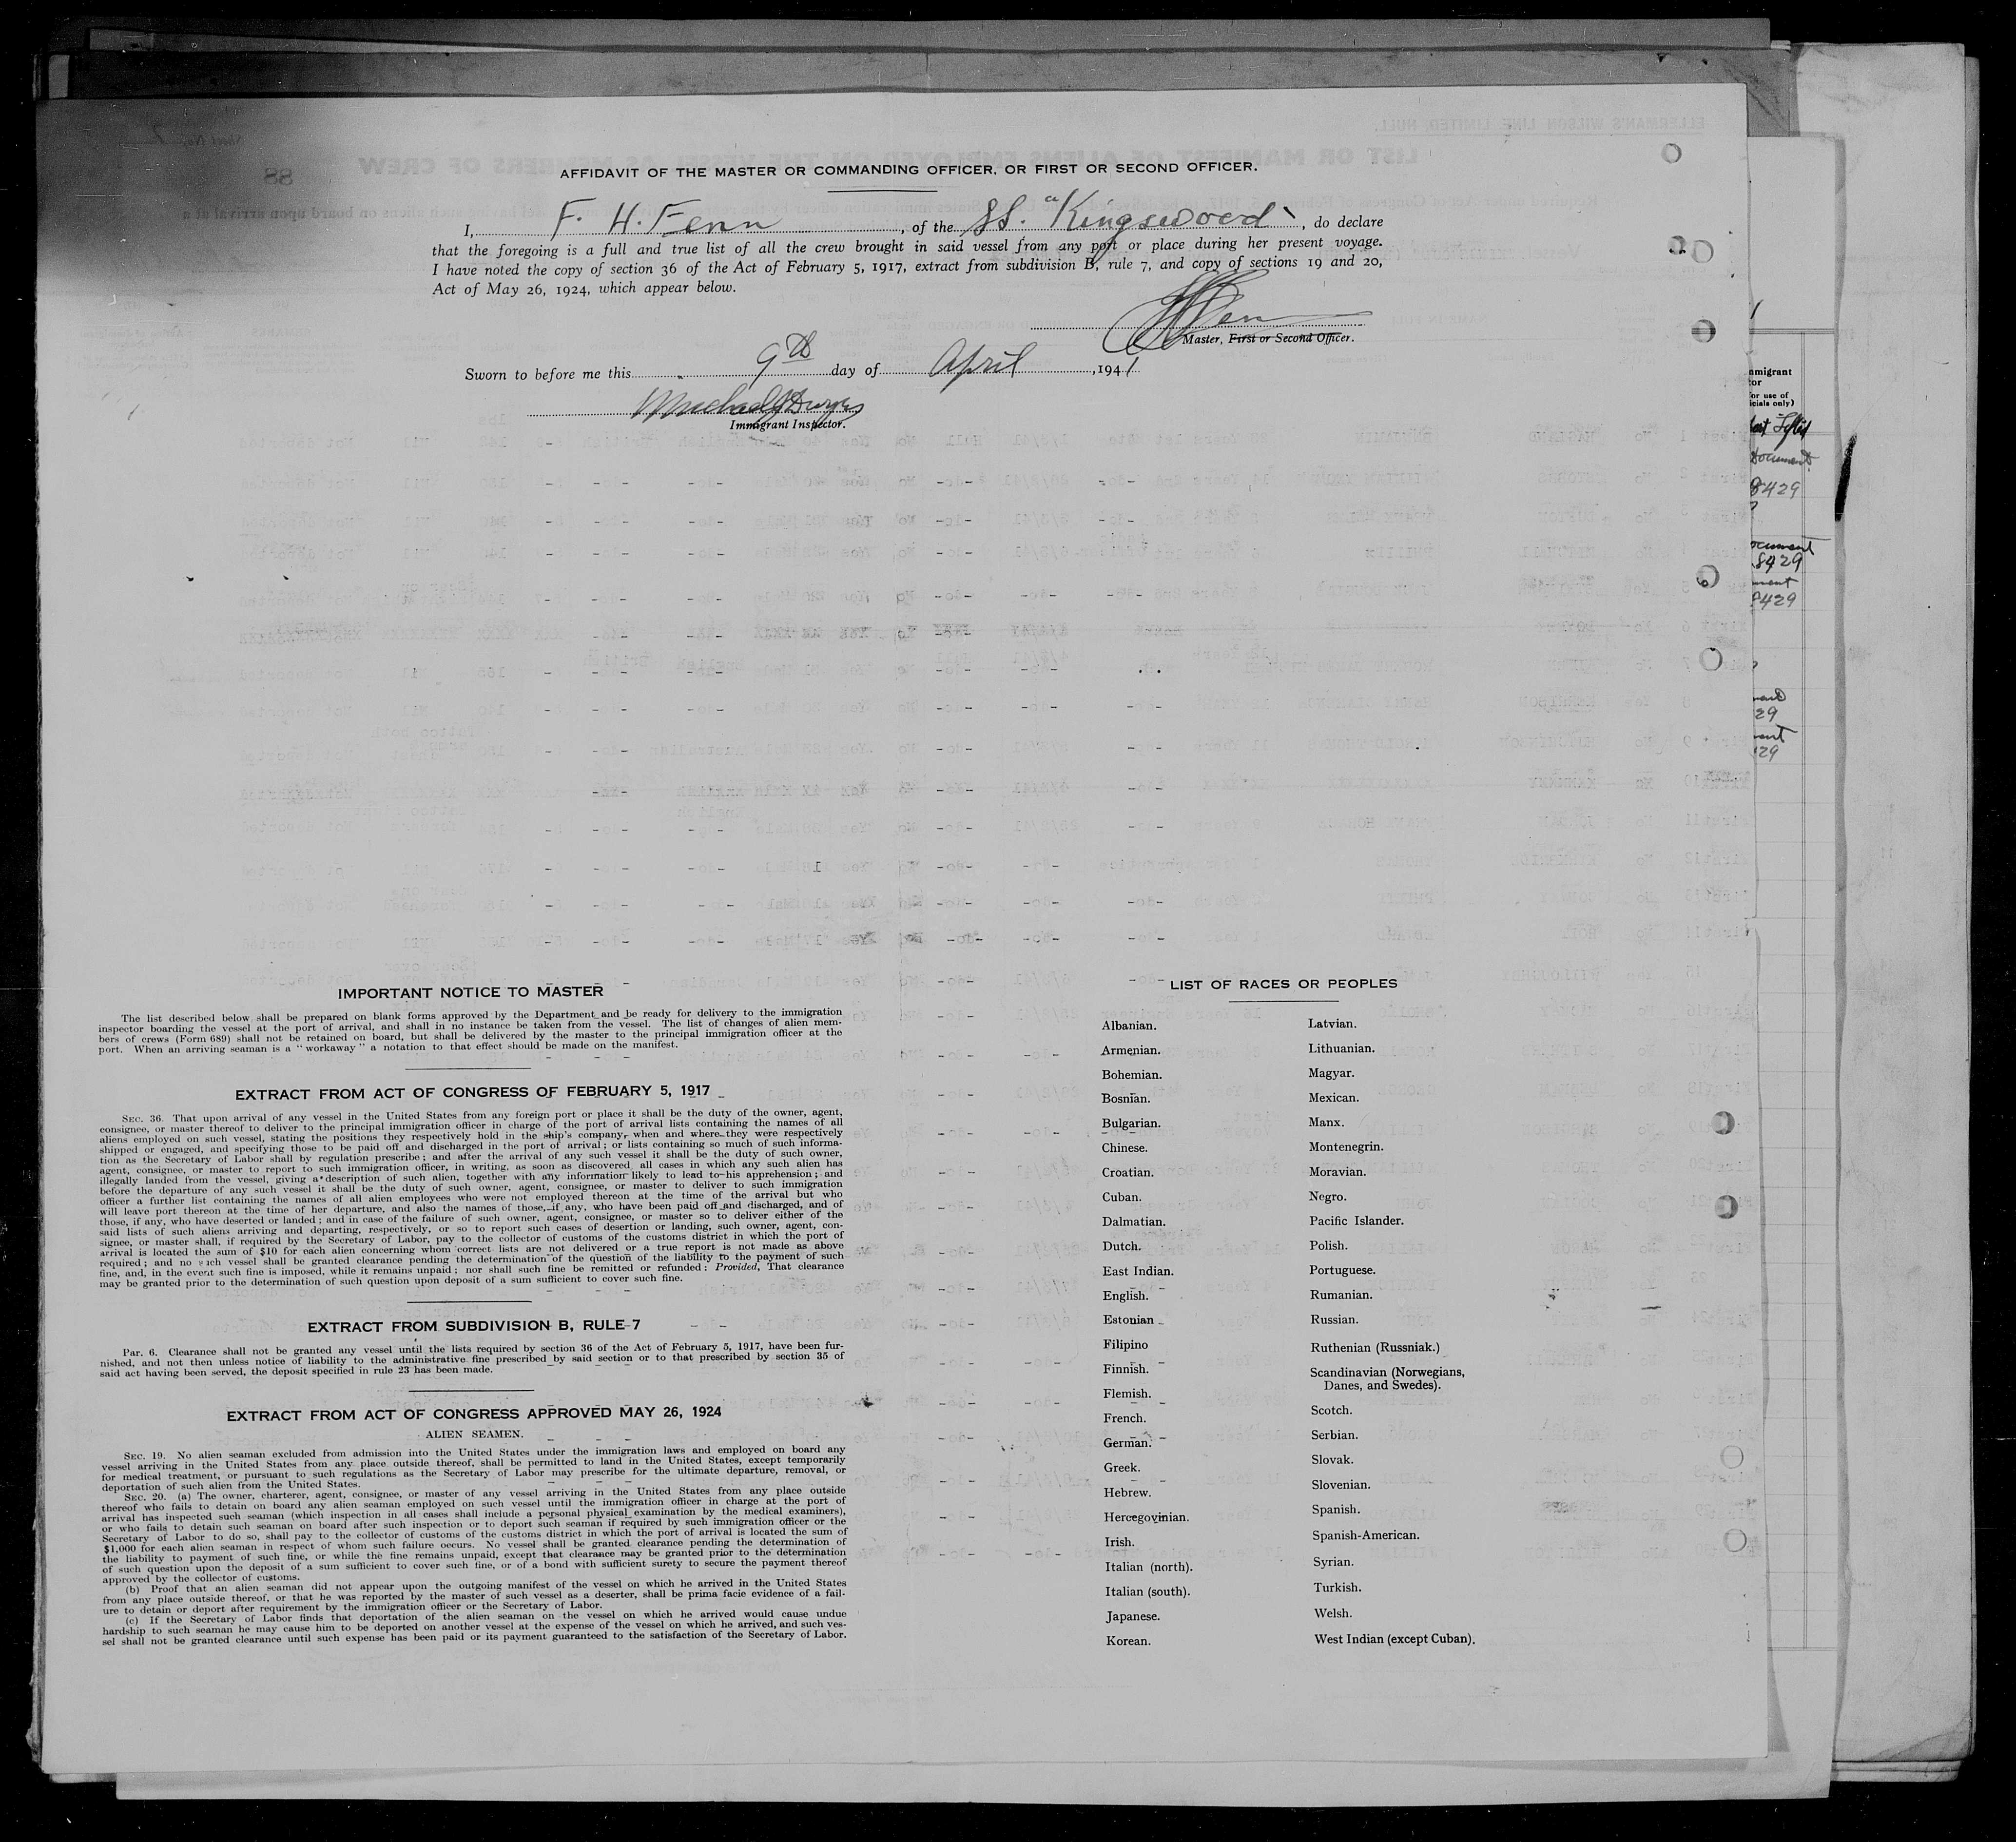 AFFIDAVIT OF THE MASTER OR COMMANDING OFFICER, OR FIRST OR SECOND OFFICER.
I, F. H. Fenn, of the SS. "Kingswood", do declare
that the foregoing is a full and true list of all the crew brought in said vessel from any port or place during her present voyage.
I have noted the copy of section 36 of the Act of February 5, 1917, extract from subdivision B, rule 7, and copy of sections 19 and 20,
Act of May 26, 1924, which appear below.
Master, First or Second Officer.
Sworn to before me this 9th day of April, 1941
Immigrant Inspector.
IMPORTANT NOTICE TO MASTER
The list described below shall be prepared on blank forms approved by the Department and be ready for delivery to the immigration
inspector boarding the vessel at the port of arrival, and shall in no instance be taken from the vessel. The list of changes of alien mem-
bers of crews (Form 689) shall not be retained on board, but shall be delivered by the master to the principal immigration officer at the
port. When an arriving seaman is a "workaway" a notation to that effect should be made on the manifest.
EXTRACT FROM ACT OF CONGRESS OF FEBRUARY 5, 1917
SEC. 36. That upon arrival of any vessel in the United States from any foreign port or place it shall be the duty of the owner, agent,
consignee, or master thereof to deliver to the principal immigration officer in charge of the port of arrival lists containing the names of all
aliens employed on such vessel, stating the positions they respectively hold in the ship's company, when and where they were respectively
shipped or engaged, and specifying those to be paid off and discharged in the port of arrival; or lists containing so much of such informa-
tion as the Secretary of Labor shall by regulation prescribe; and after the arrival of any such vessel it shall be the duty of such owner,
agent, consignee, or master to report to such immigration officer, in writing, as soon as discovered, all cases in which any such alien has
illegally landed from the vessel, giving a description of such alien, together with any information likely to lead to his apprehension; and
before the departure of any such vessel it shall be the duty of such owner, agent, consignee, or master to deliver to such immigration
officer a further list containing the names of all alien employees who were not employed thereon at the time of the arrival but who
will leave port thereon at the time of her departure, and also the names of those, if any, who have been paid off and discharged, and of
those, if any, who have deserted or landed; and in case of the failure of such owner, agent, consignee, or master so to deliver either of the
said lists of such aliens arriving and departing, respectively, or so to report such cases of desertion or landing, such owner, agent, con-
signee, or master shall, if required by the Secretary of Labor, pay to the collector of customs of the customs district in which the port of
arrival is located the sum of $10 for each alien concerning whom correct lists are not delivered or a true report is not made as above
required; and no such vessel shall be granted clearance pending the determination of the question of the liability to the payment of such
fine, and, in the event such fine is imposed, while it remains unpaid; nor shall such fine be remitted or refunded: Provided, That clearance
may be granted prior to the determination of such question upon deposit of a sum sufficient to cover such fine.
EXTRACT FROM SUBDIVISION B, RULE 7
Par. 6. Clearance shall not be granted any vessel until the lists required by section 36 of the Act of February 5, 1917, have been fur-
nished, and not then unless notice of liability to the administrative fine prescribed by said section or to that prescribed by section 35 of
said act having been served, the deposit specified in rule 23 has been made.
EXTRACT FROM ACT OF CONGRESS APPROVED MAY 26, 1924
ALIEN SEAMEN.
SEC. 19. No alien seaman excluded from admission into the United States under the immigration laws and employed on board any
vessel arriving in the United States from any place outside thereof, shall be permitted to land in the United States, except temporarily
for medical treatment, or pursuant to such regulations as the Secretary of Labor may prescribe for the ultimate departure, removal, or
deportation of such alien from the United States.
SEC. 20. (a) The owner, charterer, agent, consignee, or master of any vessel arriving in the United States from any place outside
thereof who fails to detain on board any alien seaman employed on such vessel until the immigration officer in charge at the port of
arrival has inspected such seaman (which inspection in all cases shall include a personal physical examination by the medical examiners),
or who fails to detain such seaman on board after such inspection or to deport such seaman if required by such immigration officer or the
Secretary of Labor to do so, shall pay to the collector of customs of the customs district in which the port of arrival is located the sum of
$1,000 for each alien seaman in respect of whom such failure occurs. No vessel shall be granted clearance pending the determination of
the liability to payment of such fine, or while the fine remains unpaid, except that clearance may be granted prior to the determination
of such question upon the deposit of a sum sufficient to cover such fine, or of a bond with sufficient surety to secure the payment thereof
approved by the collector of customs.
(b) Proof that an alien seaman did not appear upon the outgoing manifest of the vessel on which he arrived in the United States
from any place outside thereof, or that he was reported by the master of such vessel as a deserter, shall be prima facie evidence of a fail-
ure to detain or deport after requirement by the immigration officer or the Secretary of Labor.
(c) If the Secretary of Labor finds that deportation of the alien seaman on the vessel on which he arrived would cause undue
hardship to such seaman he may cause him to be deported on another vessel at the expense of the vessel on which he arrived, and such ves-
sel shall not be granted clearance until such expense has been paid or its payment guaranteed to the satisfaction of the Secretary of Labor.
LIST OF RACES OR PEOPLES
Albanian.
Armenian.
Bohemian.
Bosnian.
Bulgarian.
Chinese.
Croatian.
Cuban.
Dalmatian.
Dutch.
East Indian.
English.
Estonian
Filipino
Finnish.
Flemish.
French.
German.
Greek.
Hebrew.
Hercegovinian.
Irish.
Italian (north).
Italian (south).
Japanese.
Korean.
Latvian.
Lithuanian.
Magyar.
Mexican.
Manx.
Montenegrin.
Moravian.
Negro.
Pacific Islander.
Polish.
Portuguese.
Rumanian.
Russian.
Ruthenian (Russniak.)
Scandinavian (Norwegians,
Danes, and Swedes).
Scotch.
Serbian.
Slovak.
Slovenian.
Spanish.
Spanish-American.
Syrian.
Turkish.
Welsh.
West Indian (except Cuban).